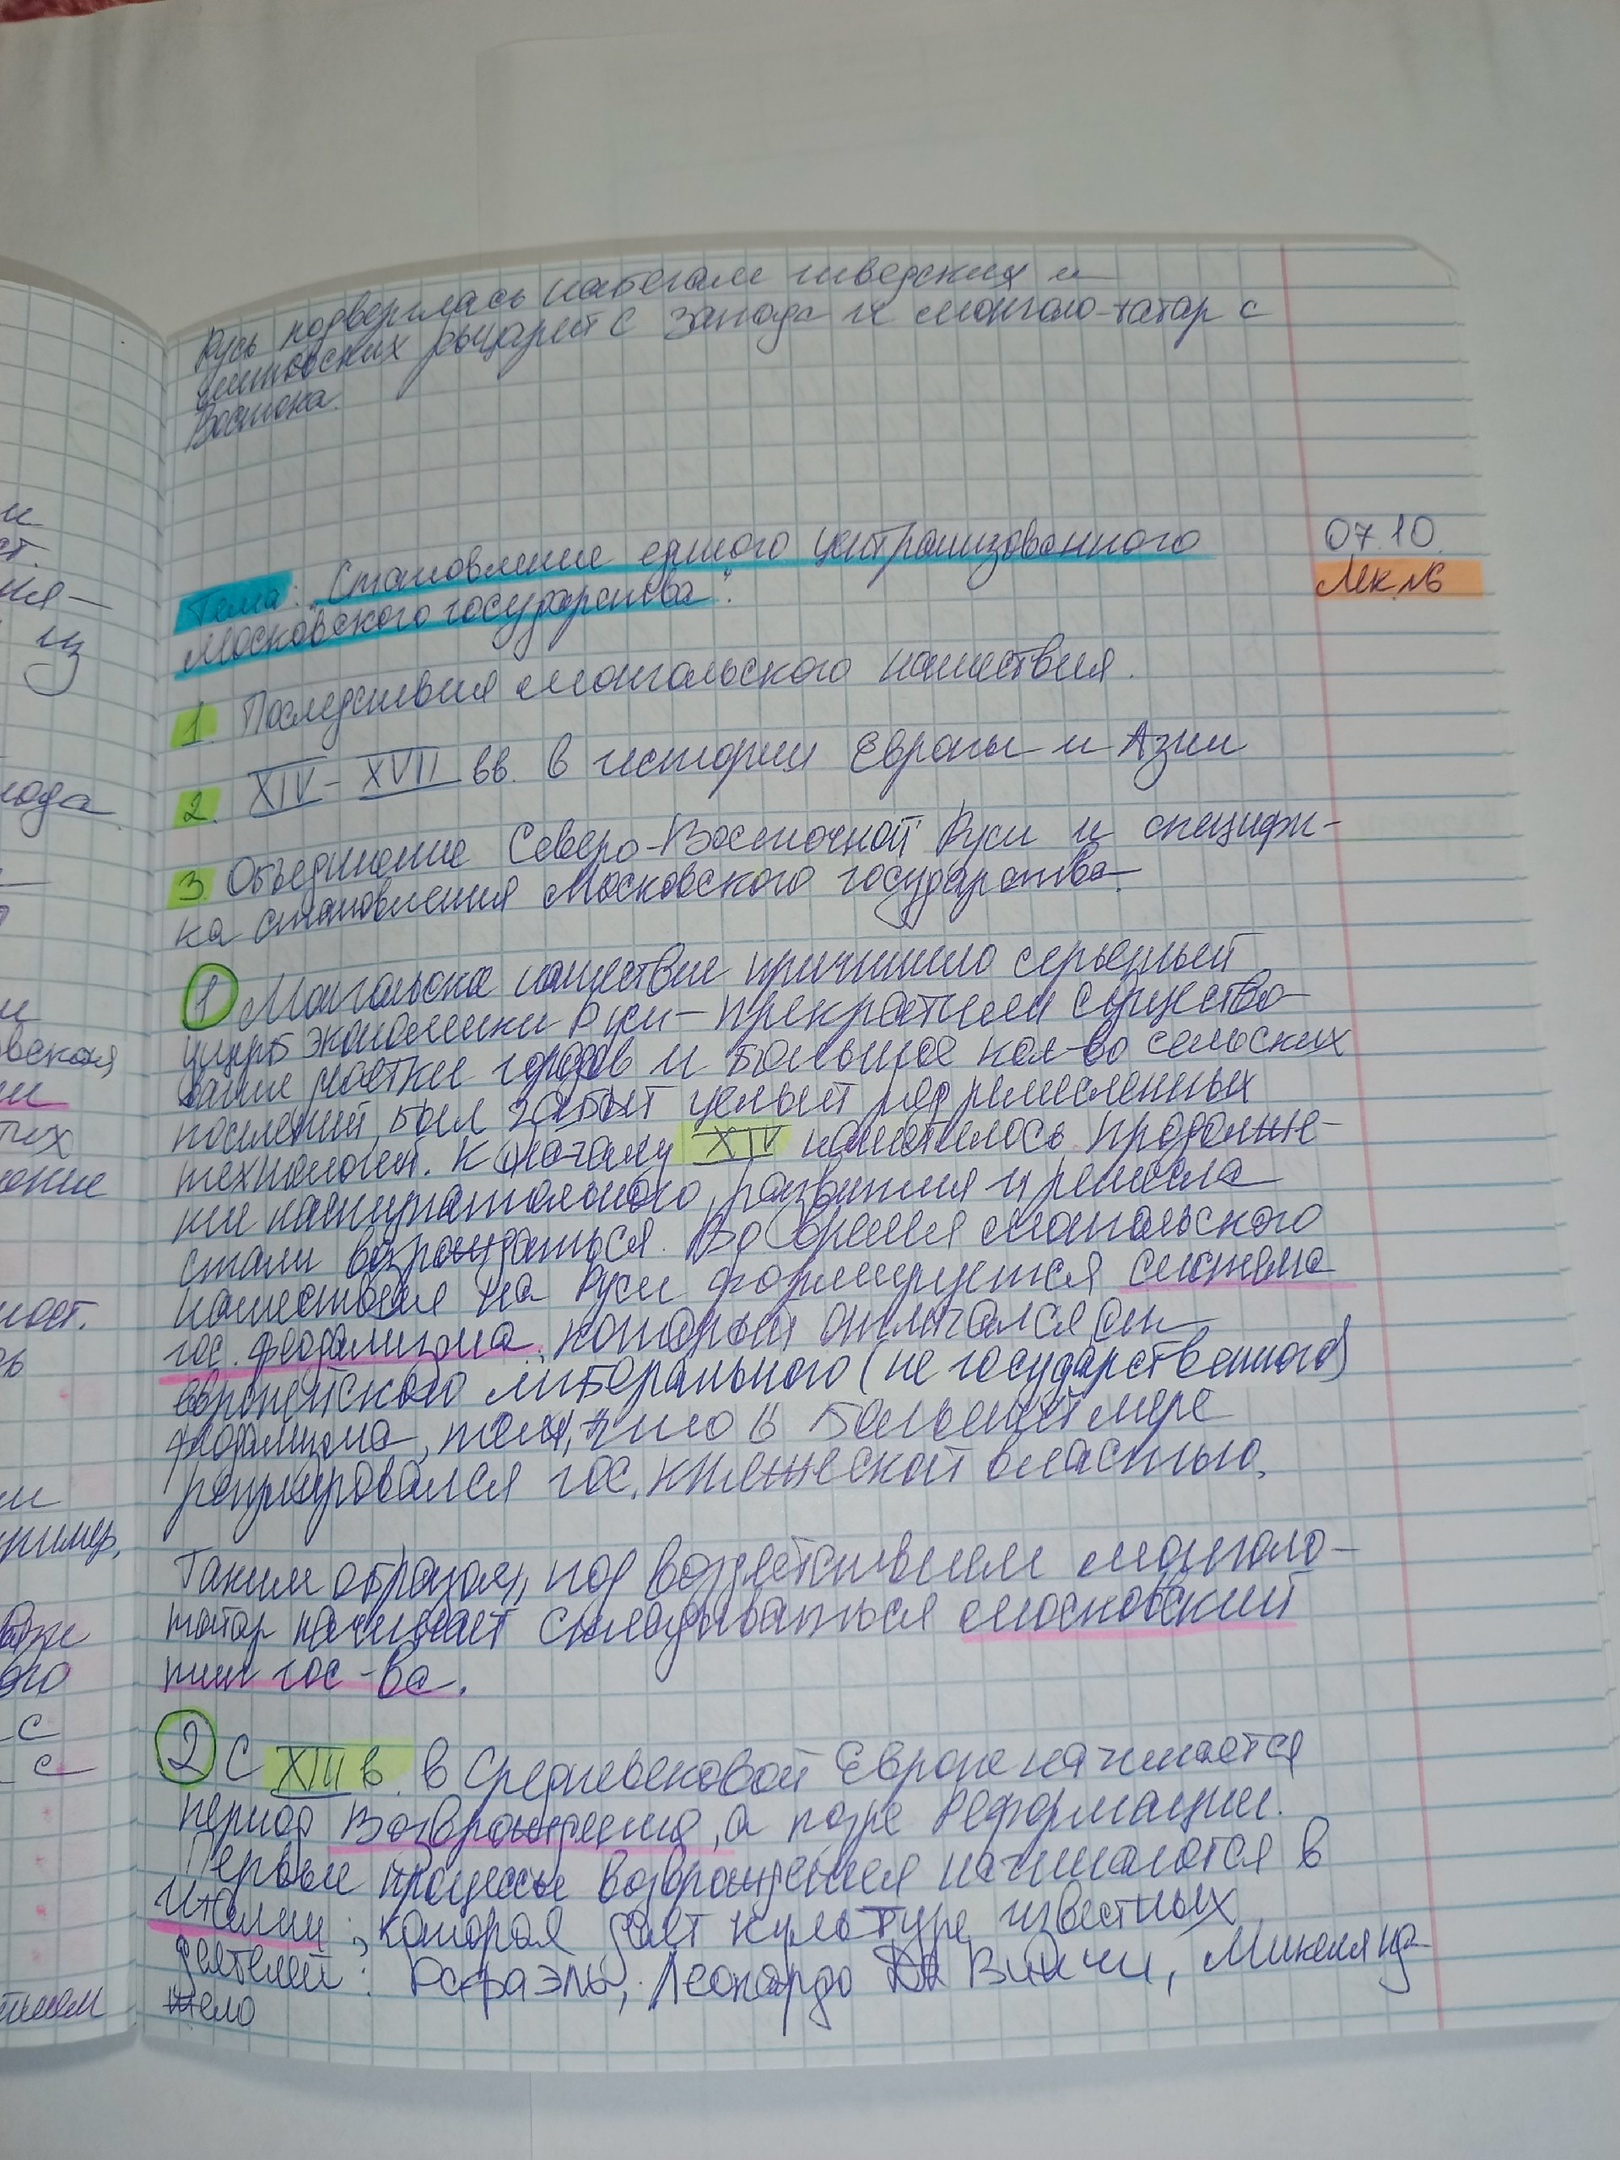 Русь подверглась набегам шведских и
литовских рыцарей с Запада и монголо-татар с
Востока.
07.10.
Тема: "Становление единого централизованного
Лек №6
Московского государства".
1. Последствия монгольского нашествия.
2. XIV - XVII вв. в истории Европы и Азии
3. Объединение Северо-Восточной Руси и специфи-
ка становления Московского государства.
1 Монгольска нашествие причинило серьезный
ущерб экономики Руси - прекратили существо-
вание городов и большое кол-во сельских
поселений, был забыт целый ряд ремесленных
технологий. К началу XIV наметилось
развития и ремесла
стали возрождаться. Во время монгольского
нашествия на Руси формируется система
гос. феодализма, который отличался от
европейского либерального (не государственного)
феодализма, тем, что в большей мере
регулировался гос. княжеской властью.
Таким образом, под воздействием монголо-
татар начинает складываться московский
тип гос-ва.
2 С XIII в. в Средневековой Европе начинается
период Возврождения, а позже Реформации.
Первые процессы возврождения начинаются в
Италии, которая даёт культуре известных
деятелей: Рафаэль, Леонардо Да Винчи, Микелянд-
жело